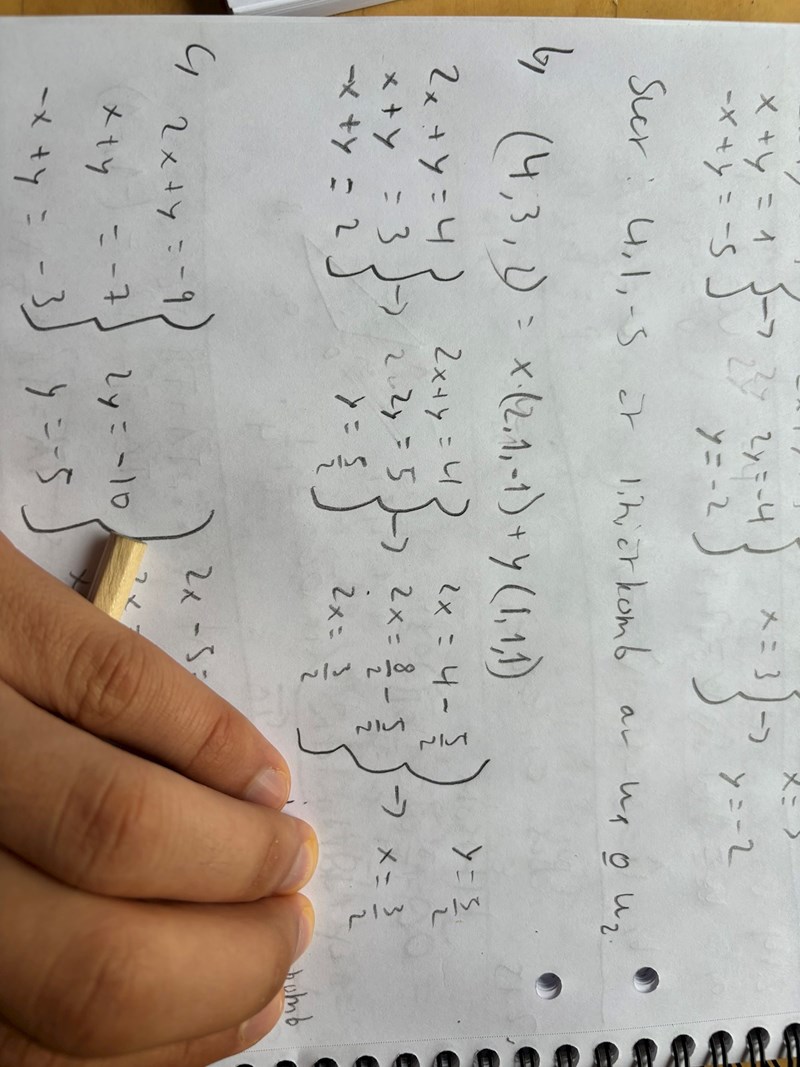 x + y = 1 } → 2y = -4 } x = 3 } → x = 3
-x + y = -5 y = -2 y = -2
Svar: 4,1,-5 är linjärkomb av u₁ o u₂.
b) (4,3,2) = x·(2,1,-1) + y(1,1,1)
2x + y = 4 2x + y = 4 2x = 4 - 5/2 y = 5/2
x + y = 3 } → 2y = 5 } → 2x = 8/2 - 5/2 } → x = 3/2
-x + y = 2 y = 5/2 2x = 3/2
c) 2x + y = -9 2x - 5 =
x + y = -7 } 2y = -10 } 2x =
-x + y = -3 y = -5 x
komb